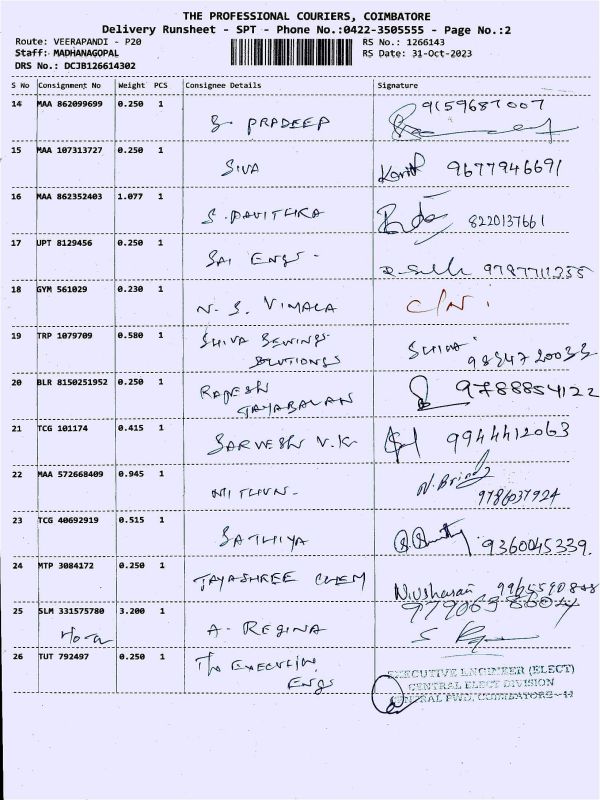 THE PROFESSIONAL COURIERS, COIMBATORE
Delivery Runsheet - SPT - Phone No.:0422-3505555 - Page No.:2
Route: VEERAPANDI - P20 RS No.: 1266143
Staff: MADHANAGOPAL RS Date: 31-Oct-2023
DRS No.: DCJB126614302
S No Consignment No Weight PCS Consignee Details Signature
14 MAA 862099699 0.250 1 S. PRADEEP 9159687007
15 MAA 107313727 0.250 1 SIVA 9677946691
16 MAA 862352403 1.077 1 S. PAVITHRA 8220137661
17 UPT 8129456 0.250 1 SAI ENGS. 9787711255
18 GYM 561029 0.230 1 N. S. VIMALA C/N.
19 TRP 1079709 0.580 1 SHIVA SEWINGS
SOLUTIONS SHIVA
20 BLR 8150251952 0.250 1 RAJESH
JAYABALAN 9788854122
21 TCG 101174 0.415 1 SARVESH V.K 9944412063
22 MAA 572668409 0.945 1 MITHUN. N. Brind
9786037924
23 TCG 40692919 0.515 1 SATHIYA 9360045339.
24 MTP 3084172 0.250 1 JAYASHREE CHEM
25 SLM 331575780 3.200 1 A. REGINA
26 TUT 792497 0.250 1 The EXECUTIVE
ENGS
EXECUTIVE ENGINEER (ELECT)
CENTRAL ELECT DIVISION
CENTRAL PWD, COIMBATORE-